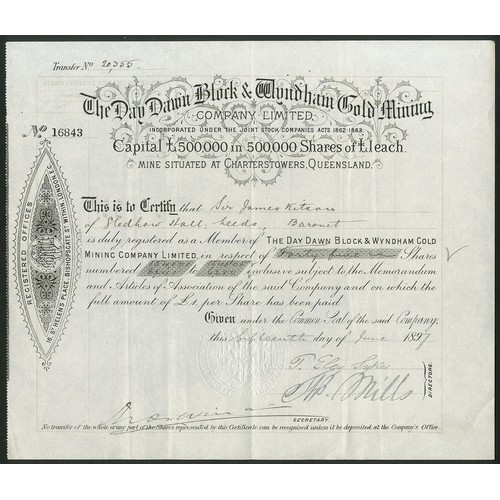 Transfer No 20,355
The Day Dawn Block & Wyndham Gold Mining
COMPANY LIMITED.
No 16843
INCORPORATED UNDER THE JOINT STOCK COMPANIES ACTS 1862-1883.
Capital £500,000 in 500,000 Shares of £1 each.
MINE SITUATED AT CHARTERSTOWERS, QUEENSLAND.
REGISTERED OFFICES
16, ST HELENS PLACE, BISHOPSGATE ST WITHIN, LONDON, E.C.
This is to Certify that Sir James Kitson
of Gledhow Hall, Leeds, Baronet
is duly registered as a Member of THE DAY DAWN BLOCK & WYNDHAM GOLD
MINING COMPANY LIMITED, in respect of Shares
numbered to inclusive subject to the Memorandum
and Articles of Association of the said Company and on which the
full amount of £1. per Share has been paid.
Given under the Common Seal of the said Company;
this Fifteenth day of June 1897
T. Eley Sykes
Mills
DIRECTORS.
SECRETARY.
No transfer of the whole or any part of the Shares represented by this Certificate can be recognised unless it be deposited at the Company's Office.